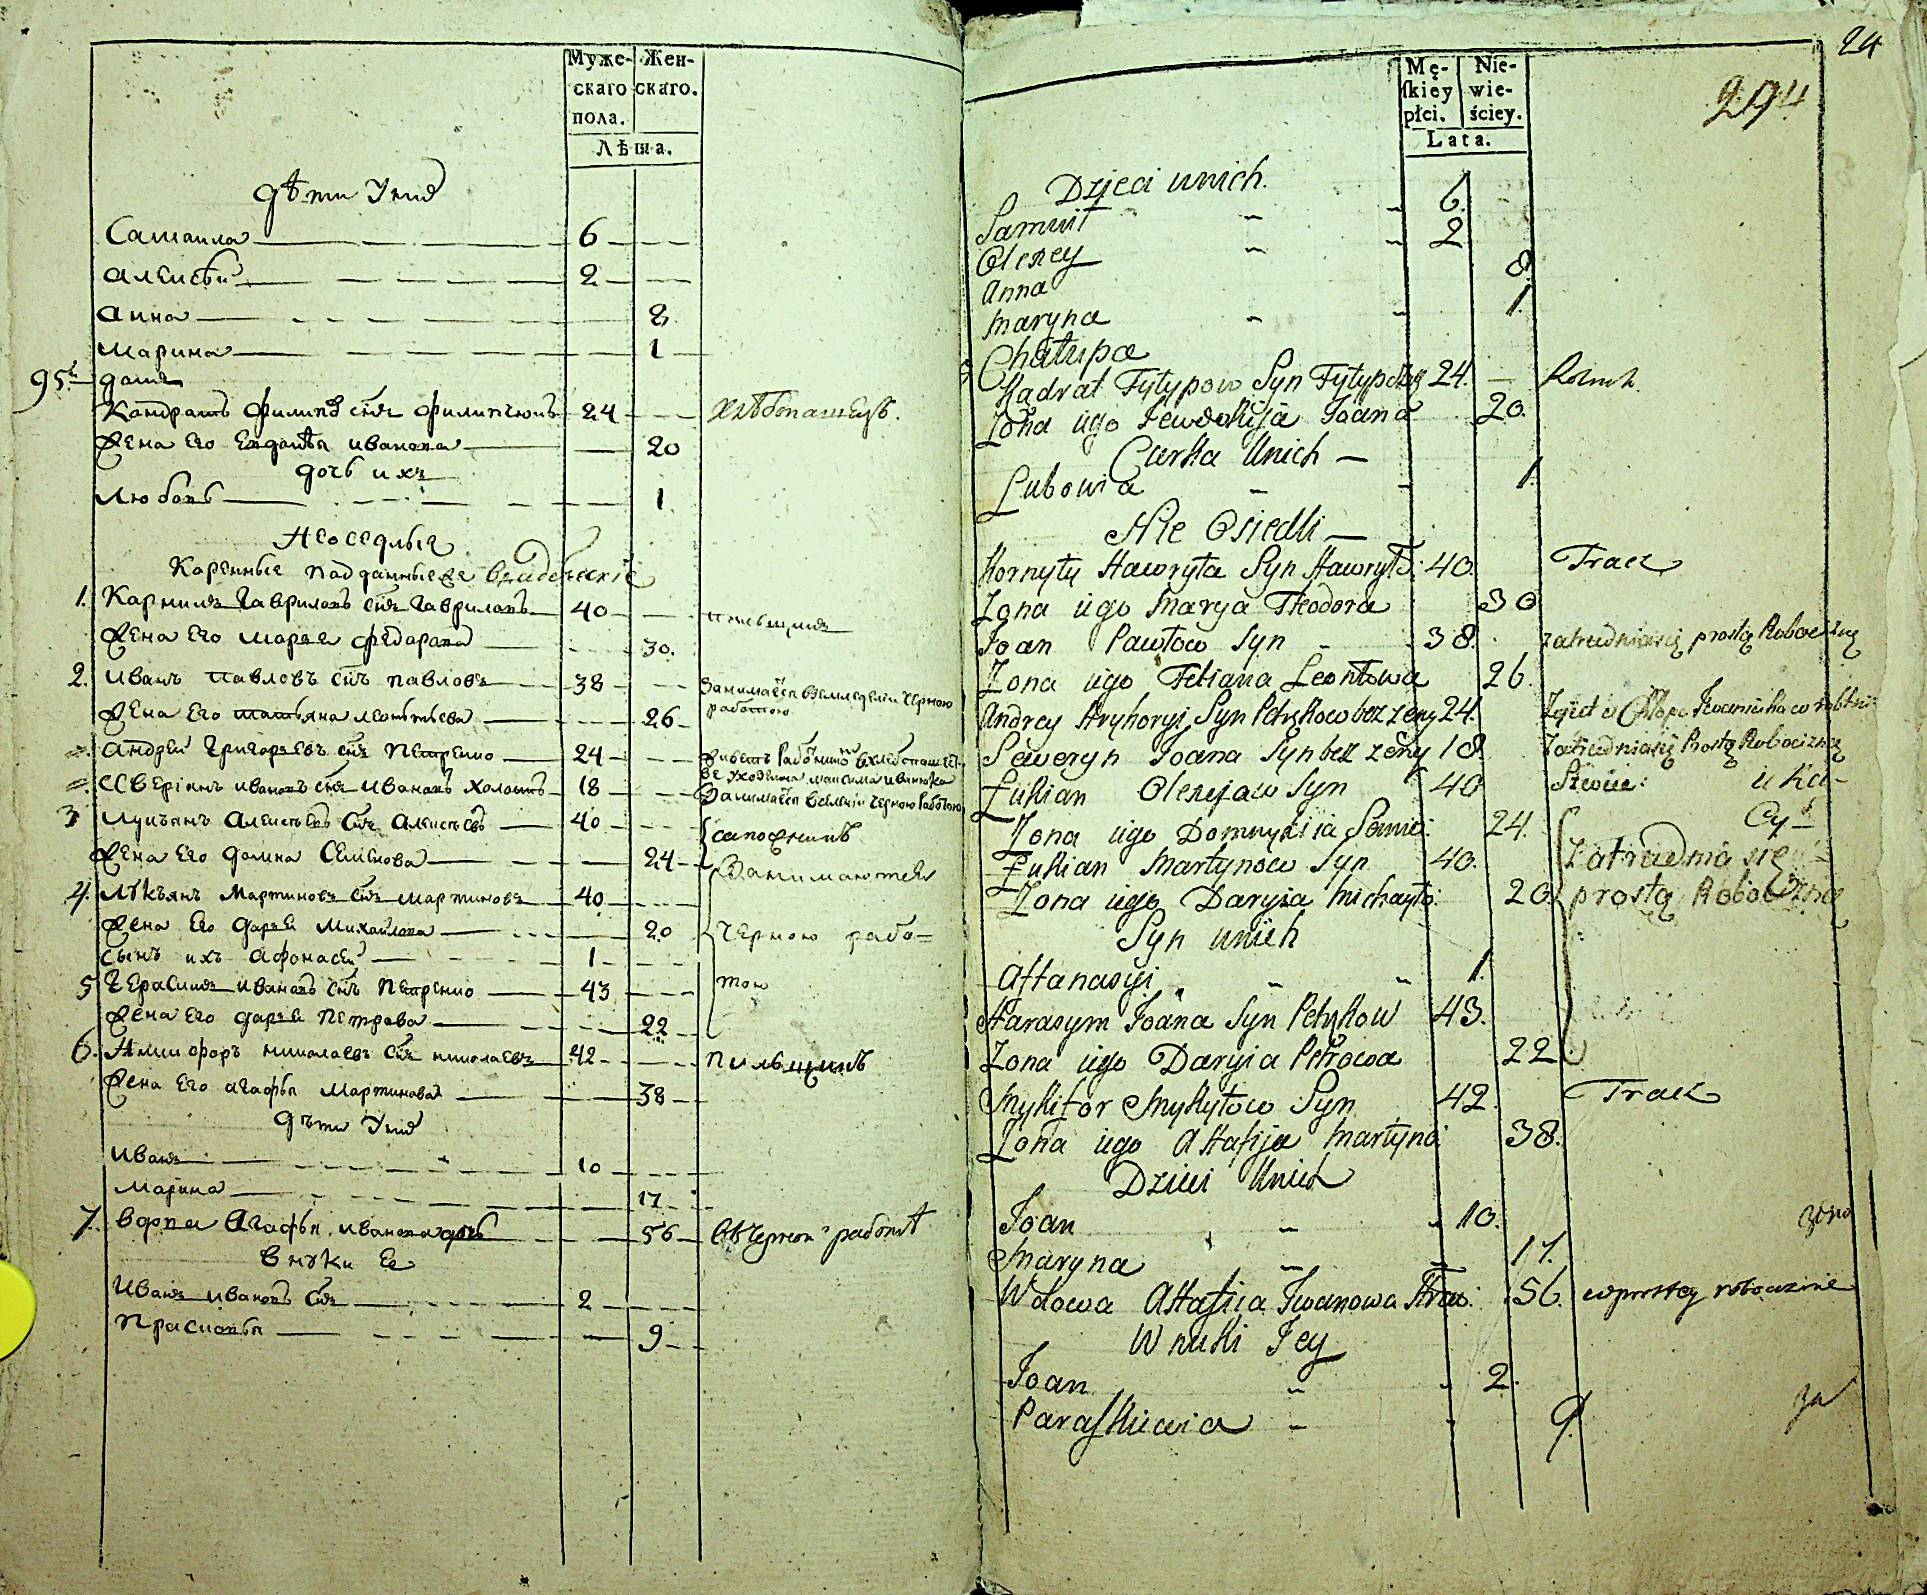 Муже-
скаго
пола.
Жен-
скаго.
Лѣта.
дѣти Ихъ
Самоила 6
Алексѣй 2
Анна 8
Марина 1
95й домъ
Кондратъ Филиповъ снъ 24 хлѣбопашецъ.
Жена Его Евдокѣя Иванова 20
дочь ихъ
Любовь 1
Неоседлые
Коренные подданные
1. Карнило Гавриловъ снъ Гавриловъ 40 пильщикъ
Жена Его Марья Федорова 30.
2. Иванъ Павловъ снъ Павловъ 38 Занимается черною
работою
Жена Его Татьяна Леонтьева 26
Андрей Григорьевъ снъ Петренко 24
Севериянъ Ивановъ снъ Ивановъ Холостъ 18 Занимается черною работою
3 Лукьянъ Алексѣевъ снъ Алексѣевъ 40 сапожникъ
Жена Его Домна Семенова 24 Занимаются
4. Лукъянъ Мартиновъ снъ Мартиновъ 40
Жена Его Дарья Михайлова 20 Черною рабо=
сынъ ихъ Афонасей 1
5 Герасимъ Ивановъ снъ Петренко 43 тою
Жена Его Дарья Петрова 22
6. Никифоръ Николаевъ снъ Николаевъ 42 пильщикъ
Жена Его Агафья Мартинова 38
Дѣти Ихъ
Иванъ 10
Марина 17
7. Вдова Агафья Иванова дочь 56 въ черной работѣ
Внуки Ее
Иванъ Ивановъ снъ 2
Прасковья 9
24
294
Mę-
skiey
płci.
Nie-
wie-
ściey.
Lata.
Dzieci unich.
Samuił 6.
Olexey 2
Anna 8
Maryna 1.
Chałupa
Kadrat Fyłypow Syn 24. Rolnik.
Żona iigo Jewdokija Joana 20.
Curka Unich
Lubowia 1
Nie Osiedli
Kornyły Hawryła Syn Hawryło: 40. Tracz
Zona iigo Marya Theodora 30
Joan Pawłow Syn 38. zatrudniasię prostą Robocizną
Zona iigo Tetiana Leontowa 26.
Andrey Hryhoryi Syn Petrykow bez żeny 24.
Seweryn Joana Syn bez żeny 18. Zatrudniasię Prostą Robocizną
Łukian Olexejow Syn 40
Zona iigo Domnykiia Semio: 24.
Łukian Martynow Syn 40. Zatrudnia się
Zona iigo Daryia Michayło: 20. prostą Robocizną
Syn unich
Attanasyi 1.
Harasym Joana Syn Petrykow 43.
Zona iigo Daryia Petrowa 22
Mykifor Mykytow Syn 42. Tracz
Zona iigo Ahafija Martyno: 38.
Dzieci Unich
Joan 10.
Maryna 17.
Wdowa Ahafiia Iwanowa 56. wprostey robociznie
Wnuki Jey
Joan 2.
Paraskiewia 9.